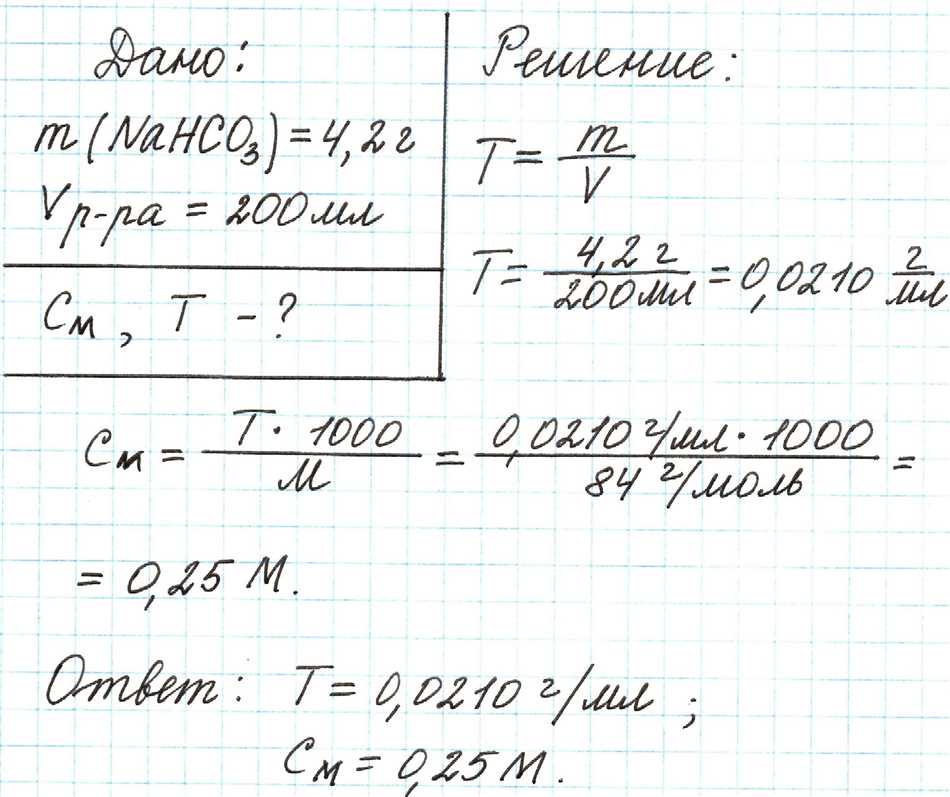 Дано:
m (NaHCO₃) = 4,2 г
Vр-ра = 200 мл
Cм, T - ?
Решение:
T = m/V
T = 4,2 г/200 мл = 0,0210 г/мл
Cм = T · 1000/M = 0,0210 г/мл · 1000/84 г/моль =
= 0,25 М.
Ответ: T = 0,0210 г/мл ;
Cм = 0,25 М.